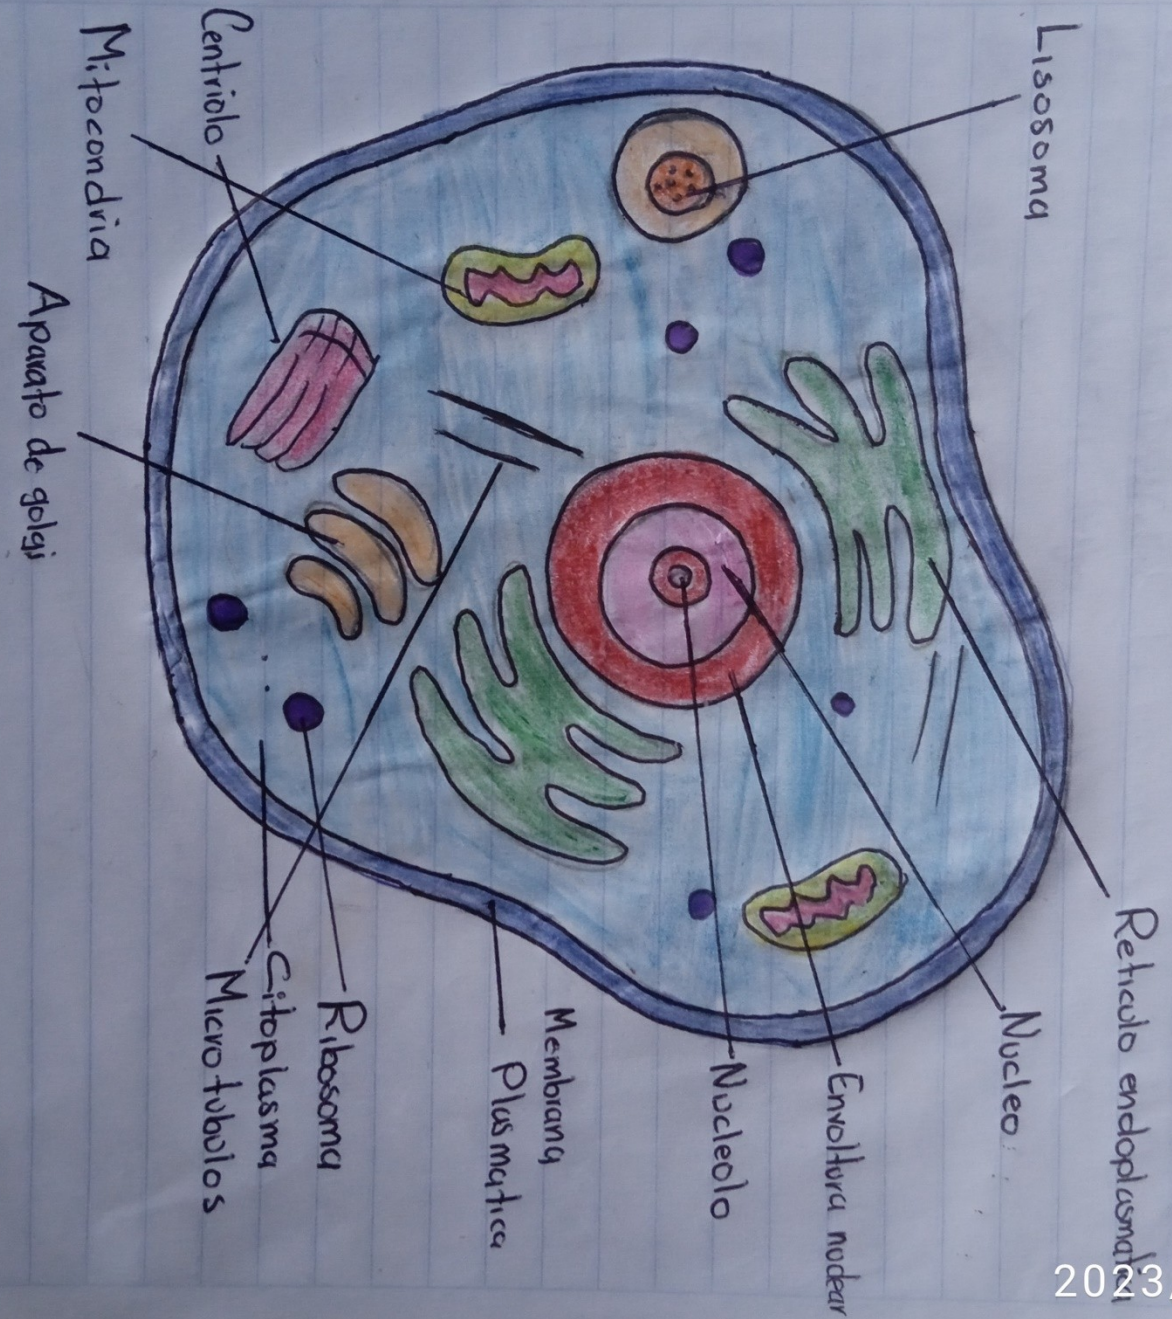 Lisosoma
Centriolo
Mitocondria
Aparato de golgi
Reticulo endoplasmatica
Nucleo
Envoltura nuclear
Nucleolo
Membrana
Plasmatica
Ribosoma
Citoplasma
Microtubulos
2023